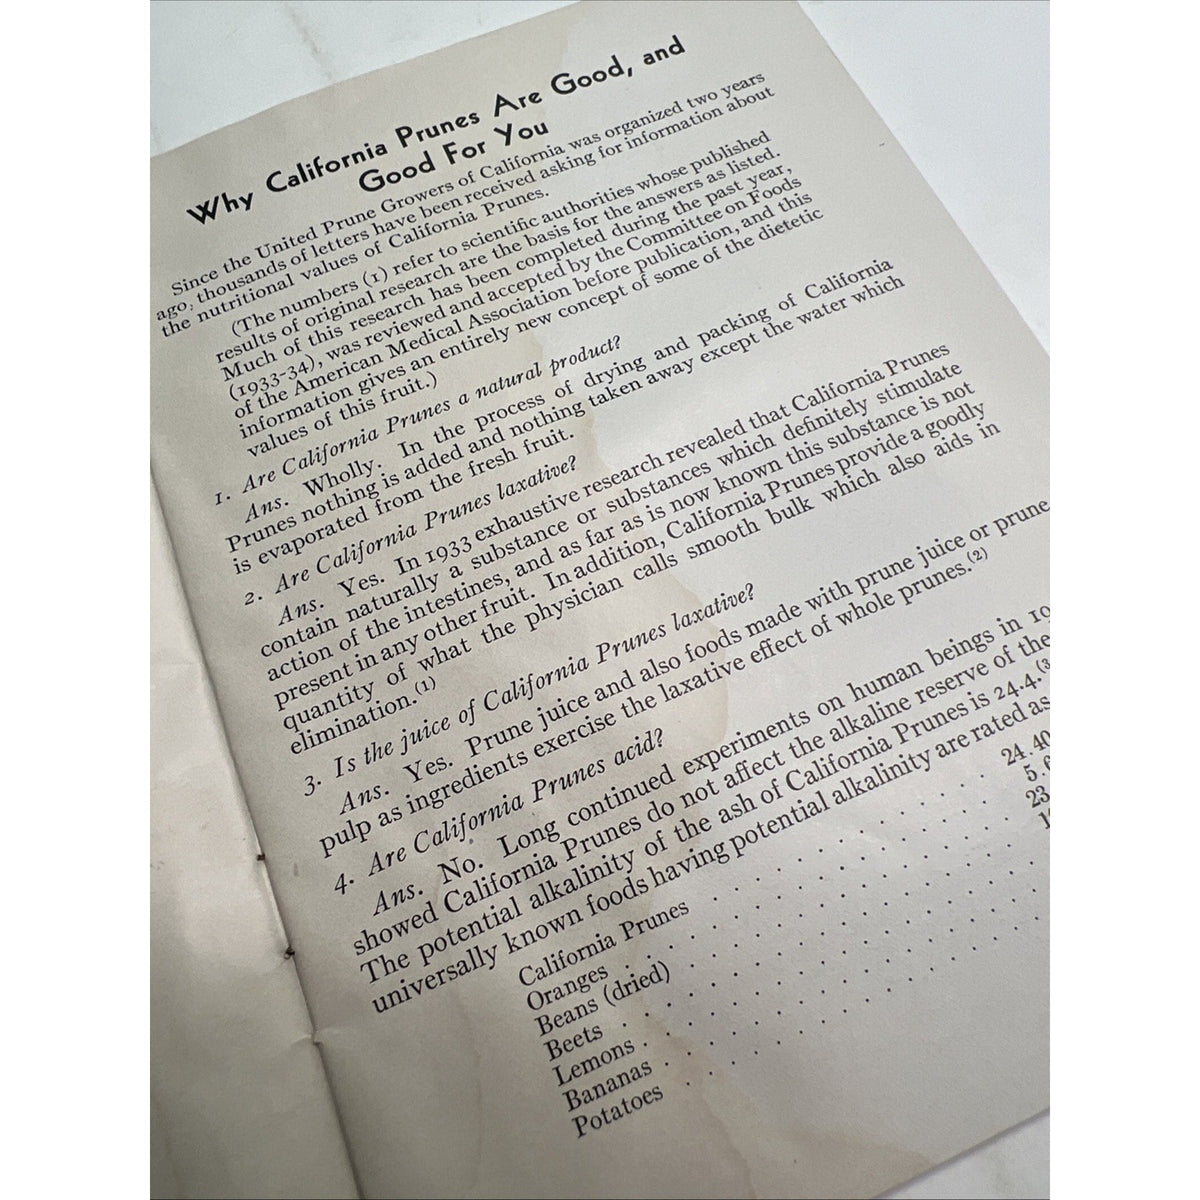 Why California Prunes Are Good, and
Good For You
Since the United Prune Growers of California was organized two years
ago, thousands of letters have been received asking for information about
the nutritional values of California Prunes.
(The numbers (1) refer to scientific authorities whose published
results of original research are the basis for the answers as listed.
Much of this research has been completed during the past year,
(1933-34), was reviewed and accepted by the Committee on Foods
of the American Medical Association before publication, and this
information gives an entirely new concept of some of the dietetic
values of this fruit.)
1. Are California Prunes a natural product?
Ans. Wholly. In the process of drying and packing of California
Prunes nothing is added and nothing taken away except the water which
is evaporated from the fresh fruit.
2. Are California Prunes laxative?
Ans. Yes. In 1933 exhaustive research revealed that California Prunes
contain naturally a substance or substances which definitely stimulate
action of the intestines, and as far as is now known this substance is not
present in any other fruit. In addition, California Prunes provide a goodly
quantity of what the physician calls smooth bulk which also aids in
elimination.(1)
3. Is the juice of California Prunes laxative?
Ans. Yes. Prune juice and also foods made with prune juice or prune
pulp as ingredients exercise the laxative effect of whole prunes.(2)
4. Are California Prunes acid?
Ans. No. Long continued experiments on human beings in 10
showed California Prunes do not affect the alkaline reserve of the
The potential alkalinity of the ash of California Prunes is 24.4.(3
universally known foods having potential alkalinity are rated as
California Prunes . . . . . . . . . . 24.40
Oranges . . . . . . . . . . . . 5.6
Beans (dried) . . . . . . . . . . 23.
Beets . . . . . . . . . . . . 1
Lemons . . . . . . . . . . . .
Bananas . . . . . . . . . . . .
Potatoes . . . . . . . . . . . .